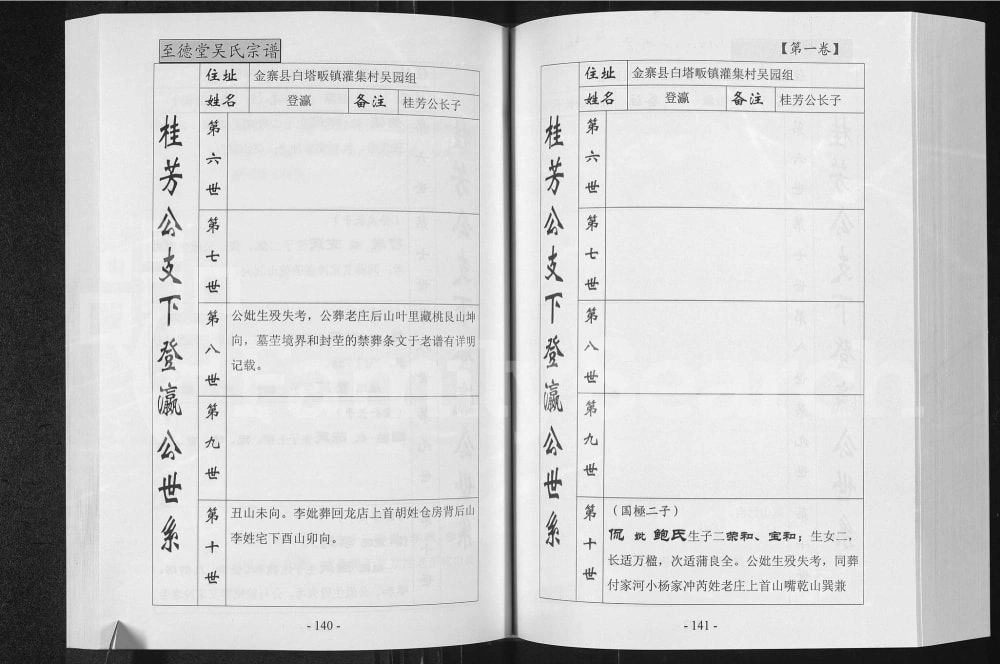 至德堂吴氏宗谱
住址 金寨县白塔畈镇灌集村吴园组
姓名 登瀛 备注 桂芳公长子
桂芳公支下登瀛公世系
第六世
第七世
第八世
公妣生殁失考，公葬老庄后山叶里藏桃艮山坤
向，墓茔境界和封茔的禁葬条文于老谱有详明
记载。
第九世
第十世
丑山未向。李妣葬回龙店上首胡姓仓房背后山
李姓宅下酉山卯向。
- 140 -
【第一卷】
住址 金寨县白塔畈镇灌集村吴园组
姓名 登瀛 备注 桂芳公长子
桂芳公支下登瀛公世系
第六世
第七世
第八世
第九世
第十世
（国極二子）
侃 妣 鲍氏生子二荣和、宝和；生女二，
长适万楹，次适蒲良全。公妣生殁失考，同葬
付家河小杨家冲芮姓老庄上首山嘴乾山巽兼
- 141 -